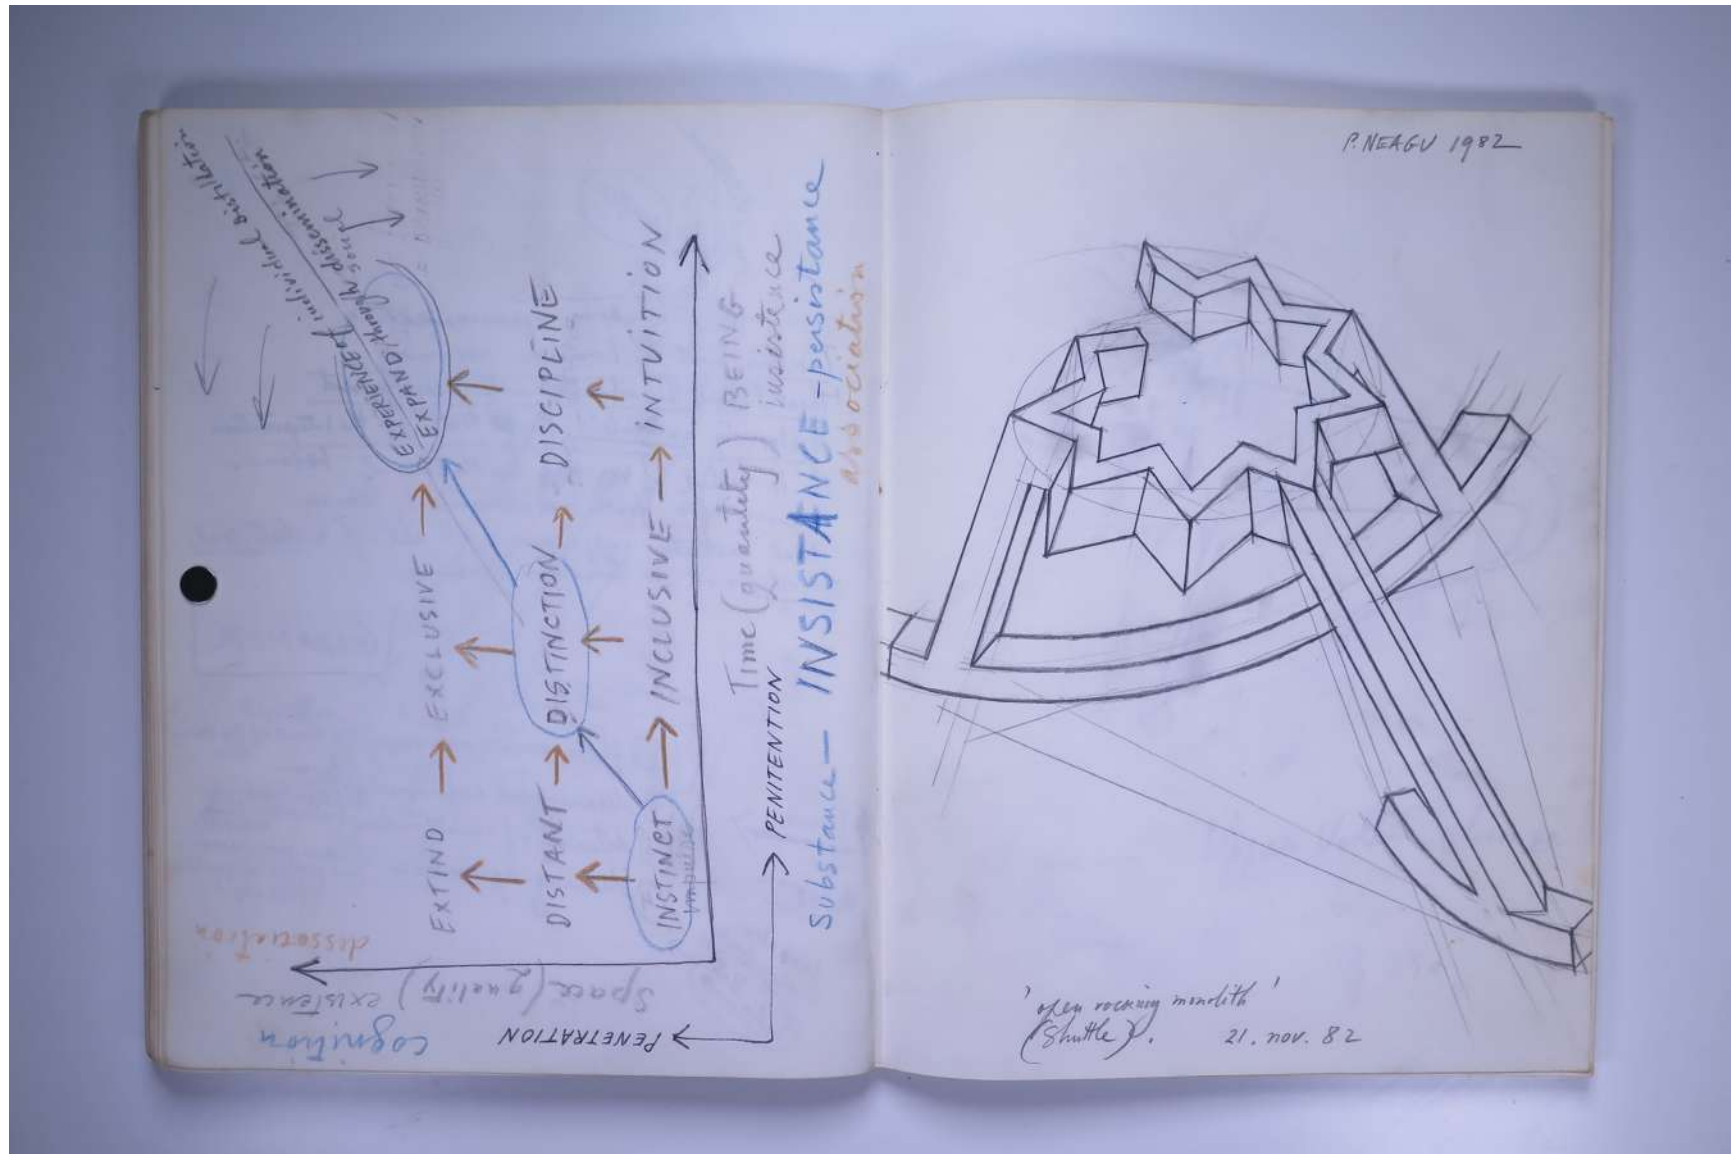 individual distillation
EXPERIENCE (
EXPAND/through dissemination
EXTIND → EXCLUSIVE →
DISTANT → DISTINCTION → DISCIPLINE
INSTINCT → INCLUSIVE → INTUITION
impulse
Time (quantity) BEING
insistence
PENITENTION
Substance — INSISTANCE - persistance
association
dissociation
Space (quality) existence
PENETRATION
cognition
P. NEAGU 1982
'open rocking monolith'
(Shuttle).
21. nov. 82